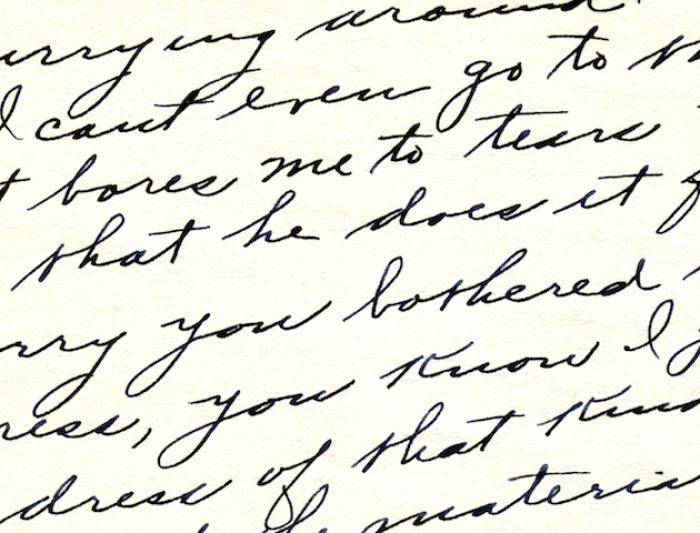 urrying around
I cant even go to
bores me to tears
that he does it
rry you bothered
ress, you know I
dress of that kind
materia